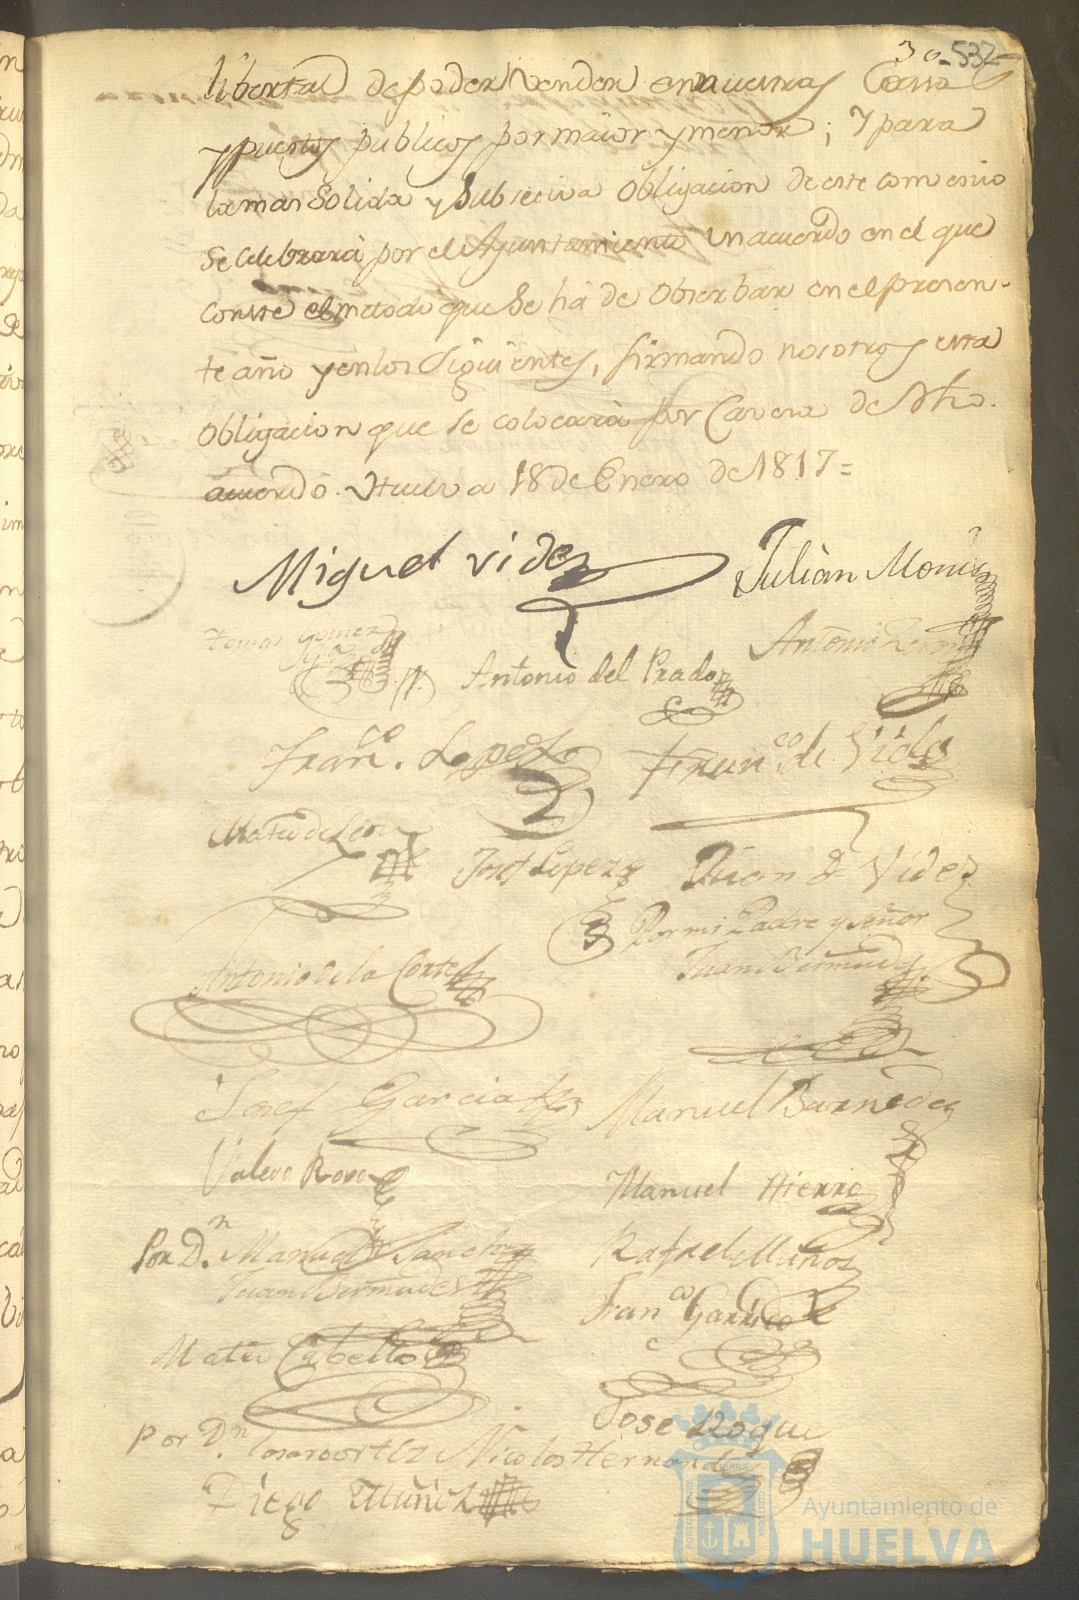 30 - 532
libertad de poder vender en nuestras Casas
y puestos publicos por maior y menor; Y para
la mas Solida y Subseciva Obligacion de este combenio
se celebrará por el Ayuntamiento un acuerdo en el que
conste el metodo que Se há de Obserbar en el presen-
te año y en los Siguientes, firmando nosotros esta
Obligacion que se colocará por Cavera de dho.
acuerdo. Huelva 18 de Enero de 1817=
Miguel Vides
Julián Monis
tomas Gomez
Antonio del Prado
Antonio
Franco. Lopez
Franco. de Vides
Mateo de Leon
Josef Lopez
Juan de Vides
Por mi Padre y señor
Juan Bermudez
Antonio de la Corte
Josef Garcia
Manuel Barnedes
Valero Roxo
Manuel Hierro
Por Dn. Manuel Sanchez
Juan Bermudez
Rafael Muños
Franco Garrido
Mateo Cabello
Jose Roque
por Dn. Lasaro ortiz Nicolas Hernandez
Diego Muñiz
Ayuntamiento de
HUELVA